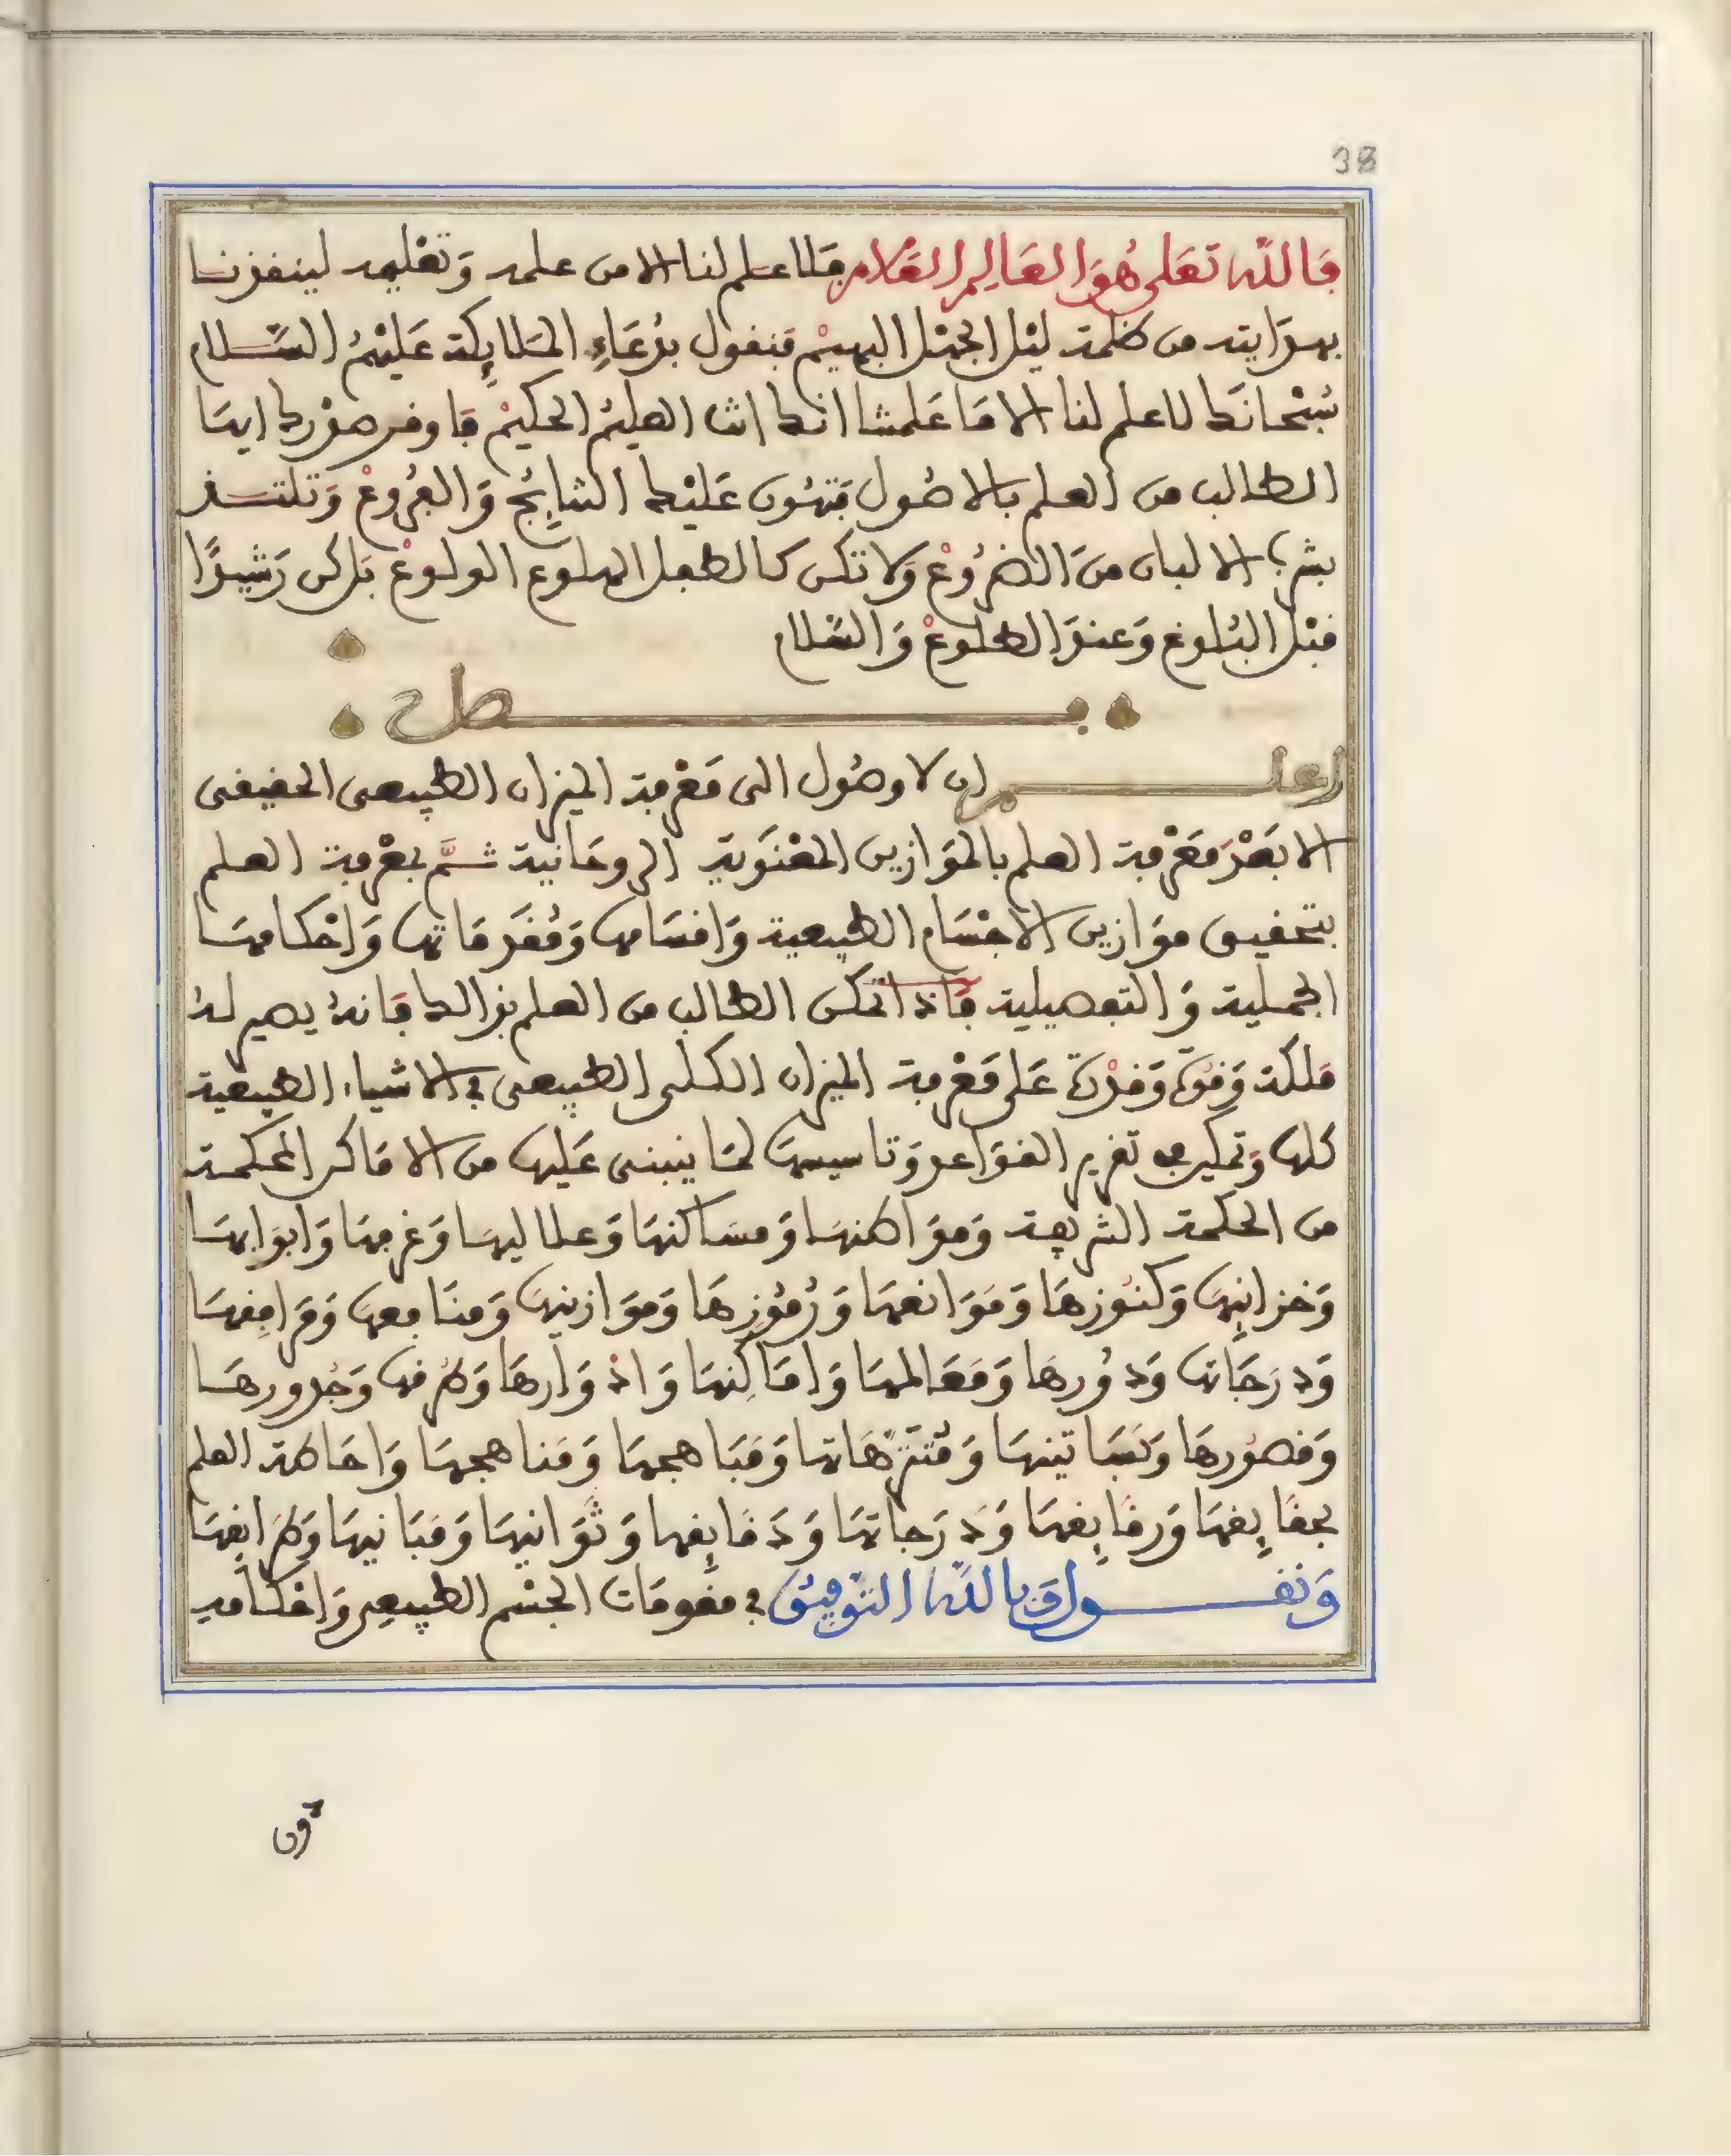 38
فالله تعلى هو العالم العلام فلا علم لنا الا من علمه وتعليمه لينقذنا
بهدايته من ظلمة ليل الجهل البهيم فنقول بدعاء الملائكة عليهم السلام
سبحانك لا علم لنا الا ما علمتنا انك انت العليم الحكيم فاوقر صدرك ايها
الطالب من العلم بالاصول فتهون عليك النتائج والفروع وتلتذ
بشرب الالبان من الضروع ولا تكن كالطفل الهلوع الولوع بل كن رشيدا
قبل البلوغ وعند الطلوع والسلام
فصل
اعلم ان لا وصول الى معرفة الميزان الطبيعي الحقيقي
الا بعد معرفة العلم بالموازين المعنوية الروحانية ثم بمعرفة العلم
بتحقيق موازين الاجسام الطبيعية واقسامها ومقدماتها واحكامها
الجملية والتفصيلية فاذا تمكن الطالب من العلم بذالك فانه يصير له
ملكة وقوة وقدرة على معرفة الميزان الكلي الطبيعي في الاشياء الطبيعية
كلها وتمكين في تقرير القواعد وتاسيسها لما ينبني عليها من الاماكن المحكمة
من الحكمة الشريفة ومواطنها ومساكنها وعلاليها وغرفها وابوابها
وخزائنها وكنوزها وموانعها ورموزها وموازينها ومنافعها ومرافقها
ودرجاتها ودورها ومعالمها واماكنها واذوارها وطرقها وجدورها
وقصورها وبساتينها ومنتزهاتها ومباهجها ومناهجها واحاطة العلم
بحقائقها ورقائقها ودرجاتها ودقائقها وثوانيها ومبانيها وطرائقها
ونقول وبالله التوفيق في مقومات الجسم الطبيعي واحكامه